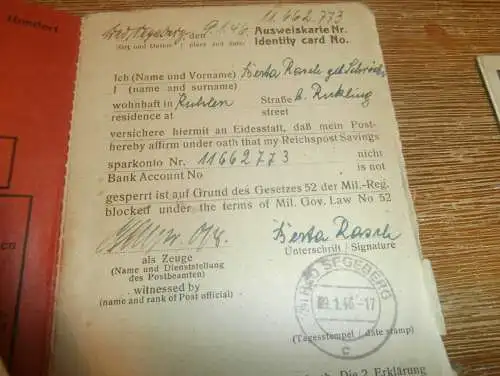 11 662 773
Bad Segeberg den 9.1.46 Ausweiskarte Nr.
Ort und Datum / place and date Identity card No.
Ich (Name und Vorname) Berta Rasch geb.
I (name and surname)
wohnhaft in Ruhlen Straße b. Rickling
residence at street
versichere hiermit an Eidesstatt, daß mein Post-
hereby affirm under oath that my Reichspost Savings
sparkonto Nr. 11662773 nicht
Bank Account No is not
gesperrt ist auf Grund des Gesetzes 52 der Mil.-Reg.
blocked under the terms of Mil. Gov. Law No 52
Berta Rasch
als Zeuge Unterschrift / Signature
(Name und Dienststellung
des Postbeamten)
witnessed by
(name and rank of Post official)
BAD SEGEBERG
09.1.46-17
c
(Tagesstempel / date stamp)
Die 2. Erklärung